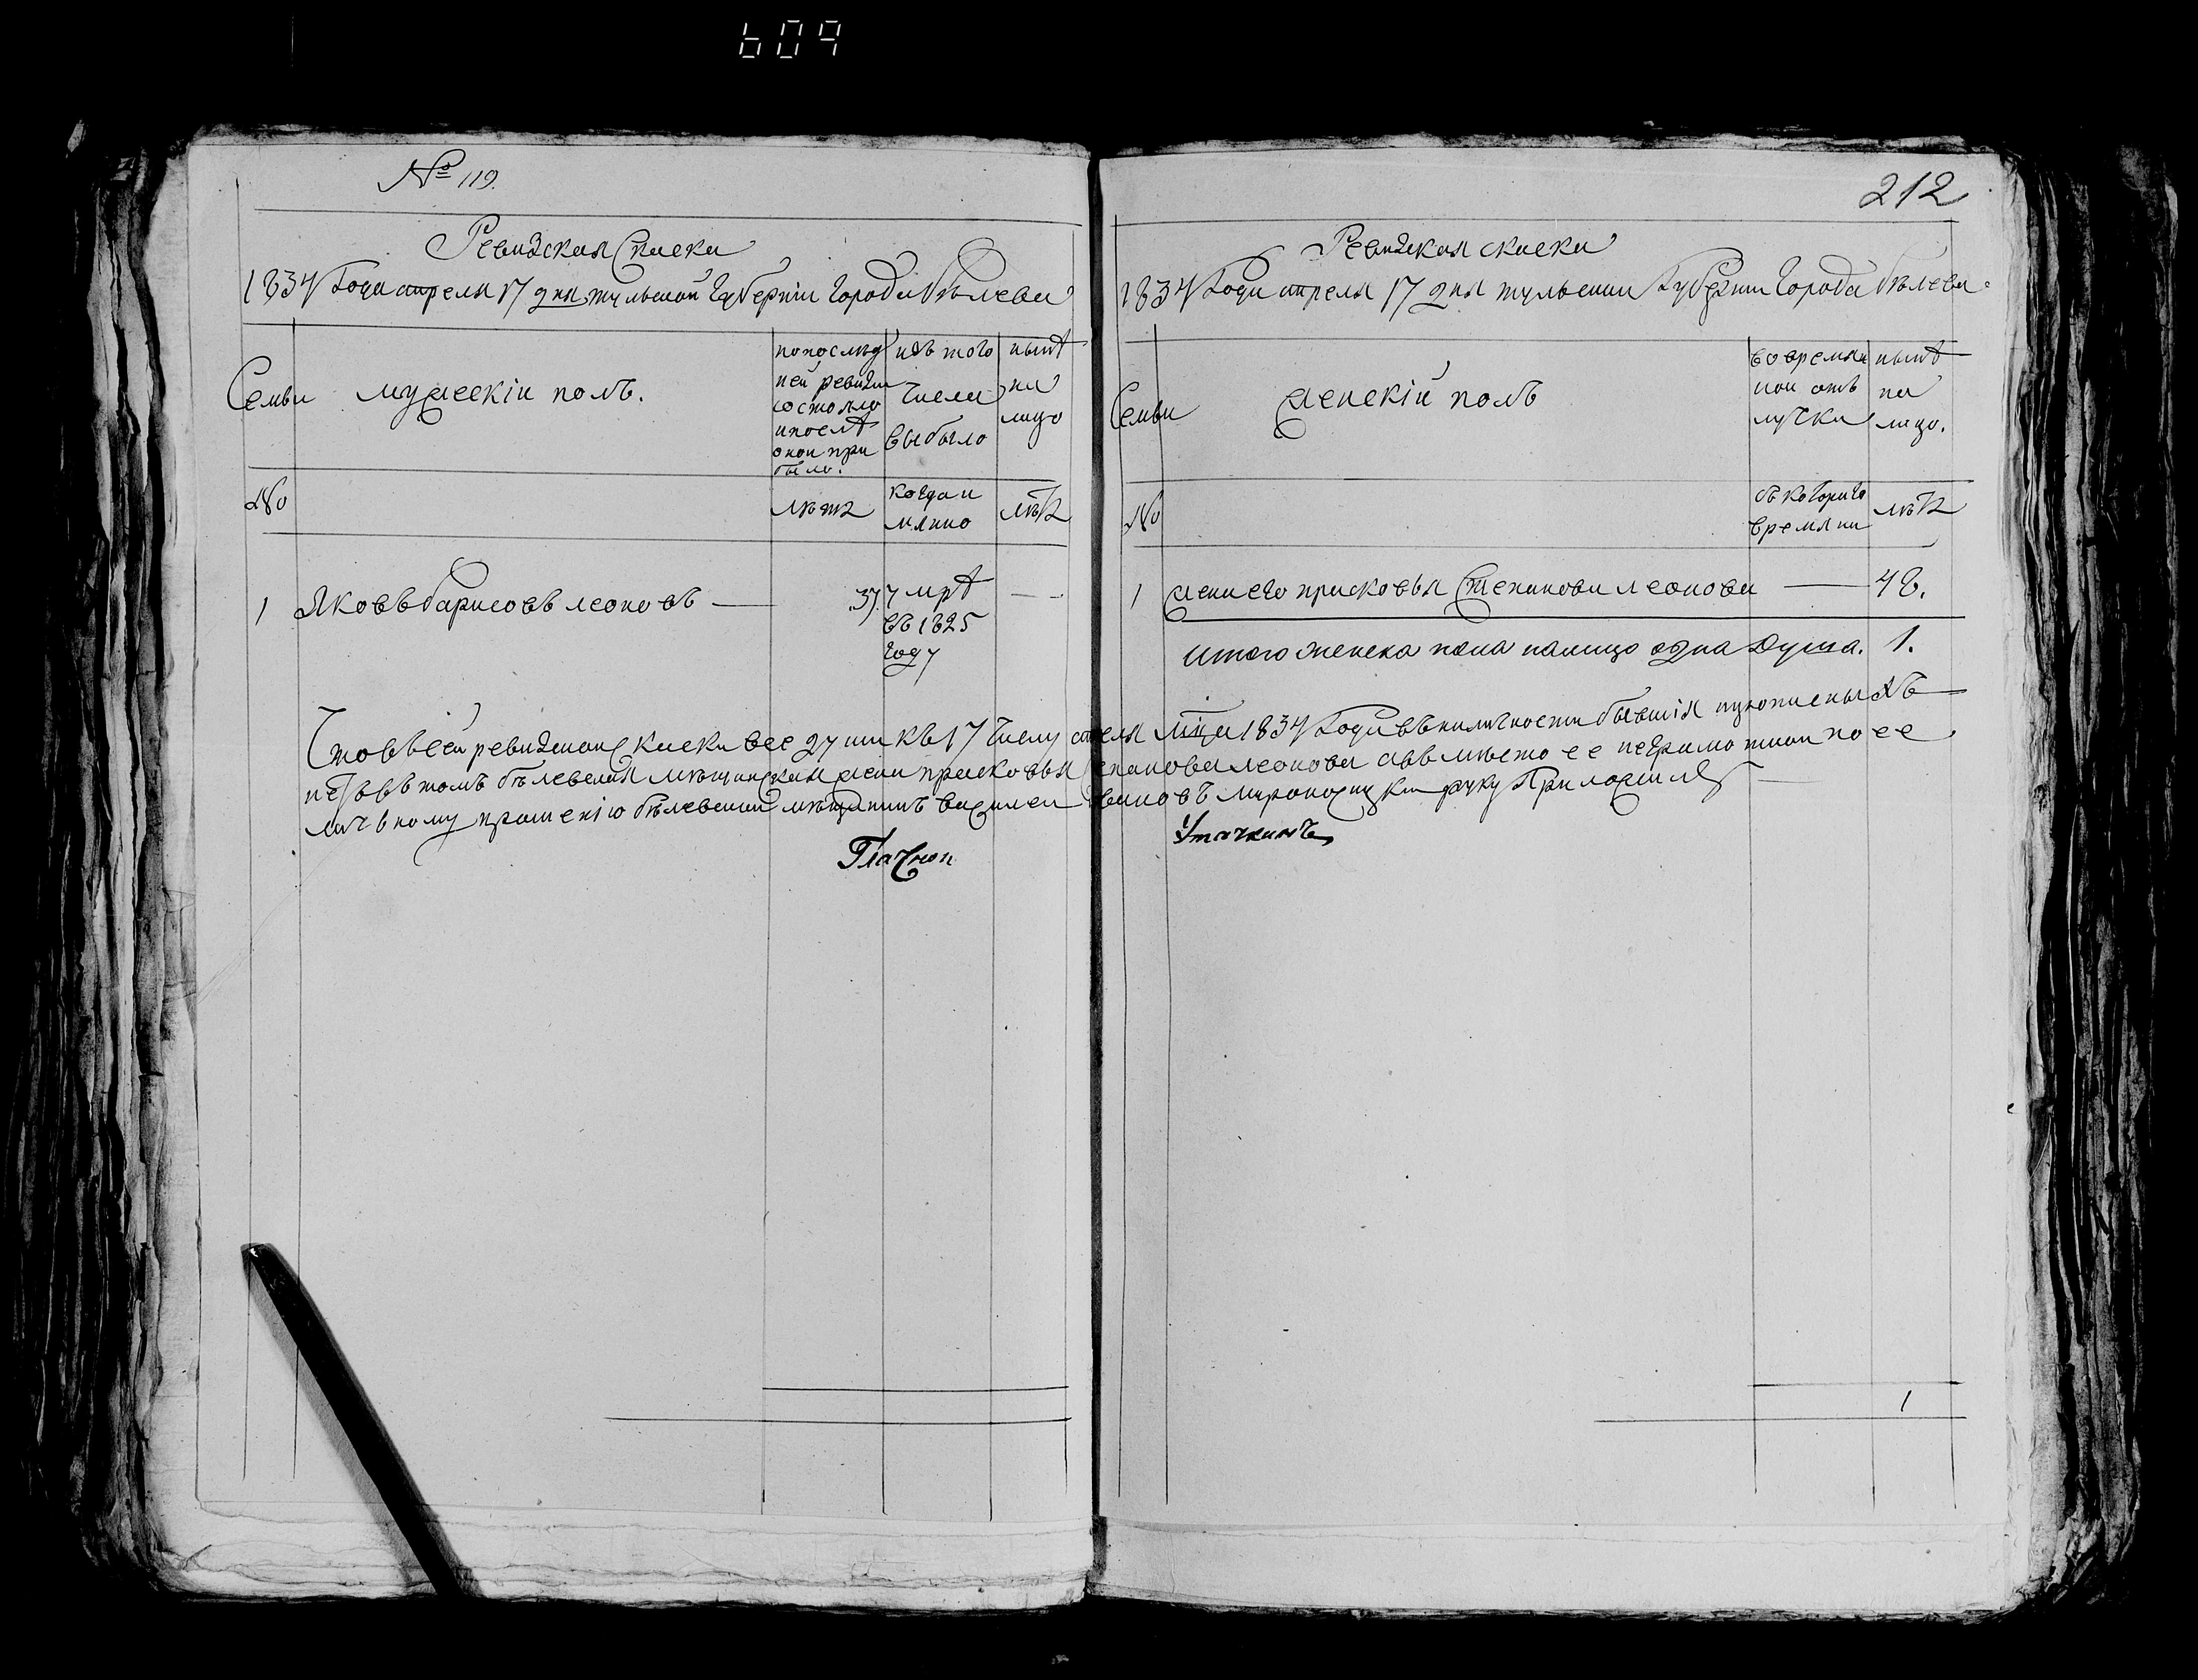 609
№ 119.
Ревизская Скаска
1834 Года апреля 17 дня тульской губернии города белева
Семьи
мужескiи полъ.
попослед
ней ревизи
состояло
ипосле
онои при
было.
изъ того
числа
выбыло
ныне
на
лицо
№
летъ
когда и
мянно
летъ
1 Яковъ барисовъ леоновъ — 37. умре —
въ 1825
году
212
Ревизкая скаска
1834 Года апреля 17 дня тульскои Губернии города белева.
Семьи
женскiй полъ
вовремян
нои отъ
лучки
ныне
на
лицо.
№
съ котораго
времяни
летъ
1 жена его прасковья Степанова леонова — 48.
итого женска пола налицо одна Душа. 1.
Что въ сей ревизской скаски все души къ 17 числу апреля мца 1834 Года въ наличности бывшiя
въ томъ белевская мещанская жена прасковья Степанова леонова авместо ее неграмотнои по ее
личному прошенiю белевскои мещанинъ василеи руку Приложилъ
Гласнои
Уточкинъ
1